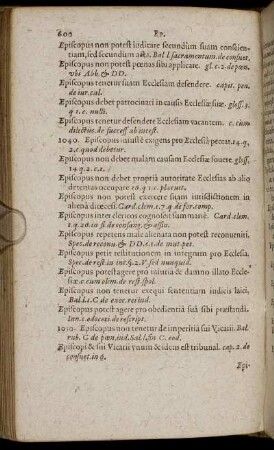 600 Ep.
Episcopus non potest iudicare secundum suam conscien-
tiam, sed secundum acta. Bal. l. sacramentum. de consuet.
Episcopus non potest poenas sibi applicare. gl. c. 2. de pœn.
vbi Abb. & DD.
Episcopus tenetur suam Ecclesiam defendere. capit.
de iur. cal.
Episcopus debet patrocinari in causis Ecclesiæ suæ. gloss.
q. 1. c. nulli.
Episcopus tenetur defendere Ecclesiam vacantem. c. cum
dilectus. de success. ab intest.
1040. Episcopus iniustè exigens pro Ecclesia peccat. 14. q.
2. s. quod debetur.
Episcopus non debet malam causam Ecclesiæ fouere. gloss.
14. q. 2. c. 1.
Episcopus non debet propria autoritate Ecclesias ab alio
detentas occupare. 16. q. 1. c. placuit.
Episcopus non potest exercere suam iurisdictionem in
aliena diœcesi. Card. clem. 1. 7. q. de for. comp.
Episcopus inter clericos cognoscit summariè. Card. clem.
1. q. 20. in fi. de censuris. & assis.
Episcopus repetens malè alienata non potest reconueniri.
Spec. de reconu. & DD. d. 1. de mut. pet.
Episcopus petit restitutionem in integrum pro Ecclesia.
Spec. de rest. in int. §. 2. V. sed nunquid.
Episcopus potest agere pro iniuria & damno illato Eccle-
siæ. c. cum olim. de rest. spol.
Episcopus non tenetur exequi sententiam iudicis laici.
Bal. l. 1. C. de exec. rei iud.
Episcopus potest agere pro obedientia sua sibi præstandi.
Inn. c. edoceri. de rescript.
1050. Episcopus non tenetur de imperitia sui Vicarii. Bal.
rub. C. de pœn. iud. Sal. l. fin. C. eod.
Episcopi & sui Vicarii vnum & idem est tribunal. cap. 2. de
consuet. in 6.
Epi-